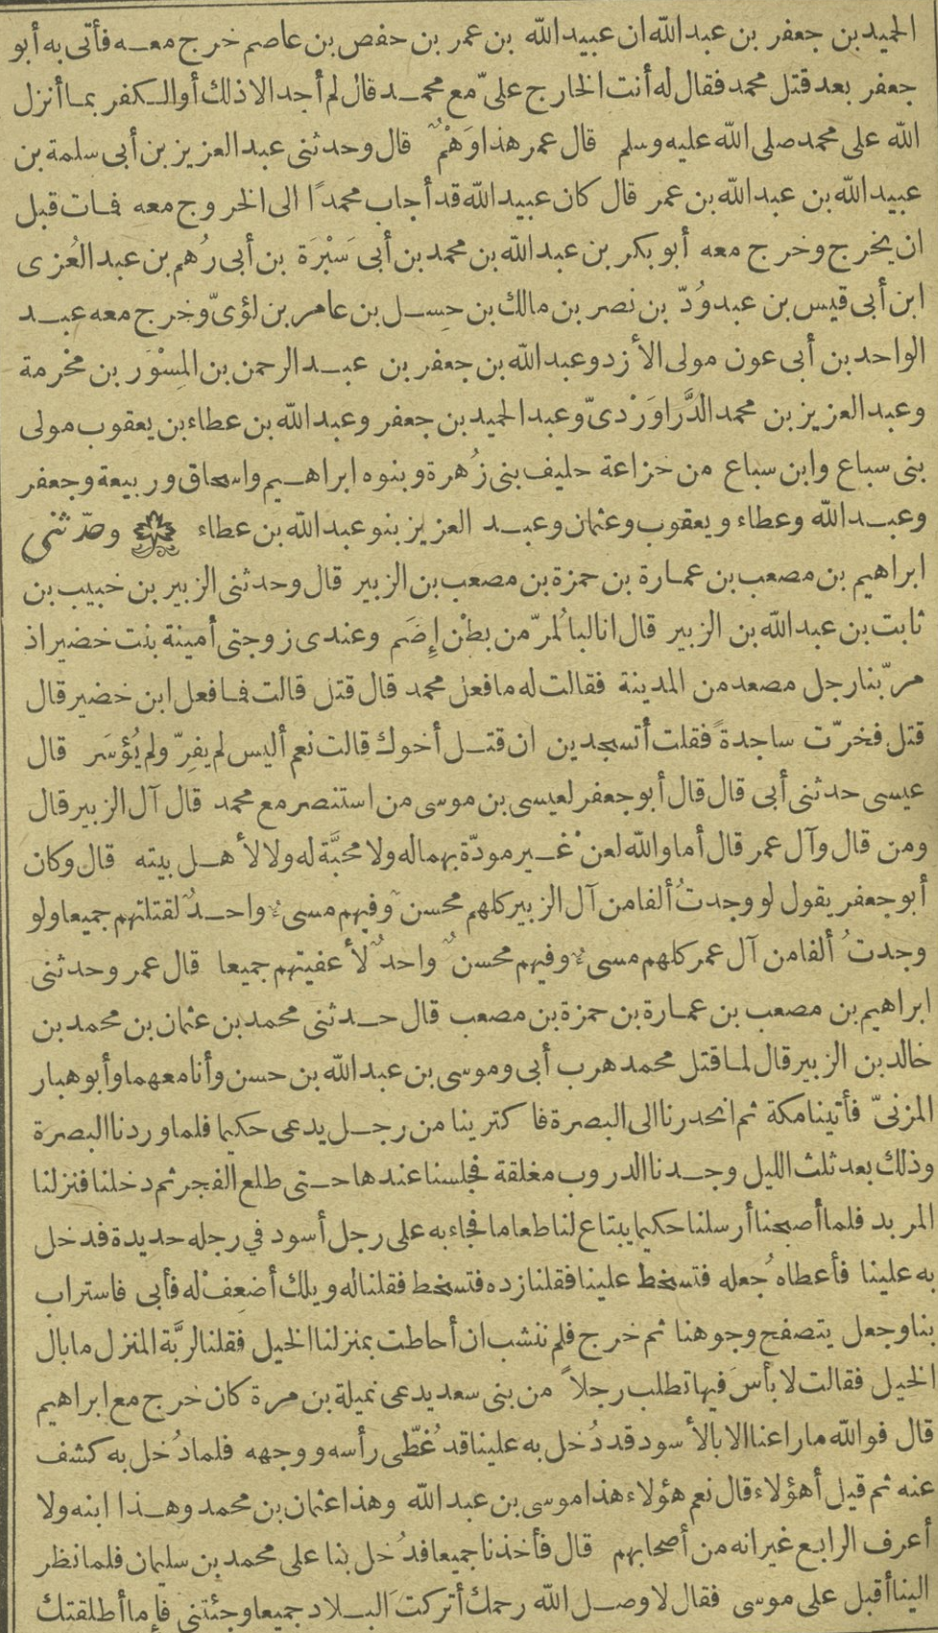 الحميد بن جعفر بن عبد الله ان عبيد الله بن عمر بن حفص بن عاصم خرج معه فأتى به أبو
جعفر بعد قتل محمد فقال له أنت الخارج علىّ مع محمد قال لم أجد الا ذلك أو الكفر بما أنزل
الله على محمد صلى الله عليه وسلم قال عمر هذا وَهْمٌ قال وحدثنى عبد العزيز بن أبى سلمة بن
عبيد الله بن عبد الله بن عمر قال كان عبيد الله قد أجاب محمدًا الى الخروج معه فمات قبل
ان يخرج وخرج معه أبو بكر بن عبد الله بن محمد بن أبى سَبْرَة بن أبى رُهم بن عبد العُزى
ابن أبى قيس بن عبد وُدّ بن نصر بن مالك بن حِسل بن عامر بن لؤىّ وخرج معه عبد
الواحد بن أبى عون مولى الأزد وعبد الله بن جعفر بن عبد الرحمن بن المِسْوَر بن مخرمة
وعبد العزيز بن محمد الدَّراوَرْدىّ وعبد الحميد بن جعفر وعبد الله بن عطاء بن يعقوب مولى
بنى سباع وابن سباع من خزاعة حليف بنى زُهرة وبنوه ابراهيم واسحاق وربيعة وجعفر
وعبد الله وعطاء ويعقوب وعثمان وعبد العزيز بنو عبد الله بن عطاء وحدّثنى
ابراهيم بن مصعب بن عمارة بن حمزة بن مصعب بن الزبير قال وحدثنى الزبير بن خبيب بن
ثابت بن عبد الله بن الزبير قال انا لبالمُرّ من بطْن إِضَم وعندى زوجتى أمينة بنت خضير اذ
مرّ بنا رجل مصعد من المدينة فقالت له ما فعل محمد قال قتل قالت فما فعل ابن خضير قال
قتل فخرّت ساجدةً فقلت أتسجدين ان قتل أخوك قالت نعم أليس لم يفِرّ ولم يُؤسَر قال
عيسى حدثنى أبى قال قال أبو جعفر لعيسى بن موسى من استنصر مع محمد قال آل الزبير قال
ومن قال وآل عمر قال أما والله لعنْ غير مودّة بهما له ولا محبَّة له ولا لأهل بيته قال وكان
أبو جعفر يقول لو وجدتُ ألفا من آل الزبير كلهم محسن وفيهم مسىء واحدٌ لقتلتهم جميعا ولو
وجدتُ ألفا من آل عمر كلهم مسىء وفيهم محسنٌ واحدٌ لأعفيتهم جميعا قال عمر وحدثنى
ابراهيم بن مصعب بن عمارة بن حمزة بن مصعب قال حدثنى محمد بن عثمان بن محمد بن
خالد بن الزبير قال لما قتل محمد هرب أبى وموسى بن عبد الله بن حسن وأنا معهما وأبو هبار
المزنىّ فأتينا مكة ثم انحدرنا الى البصرة فاكترينا من رجل يدعى حكيما فلما وردنا البصرة
وذلك بعد ثلث الليل وجدنا الدروب مغلقة فجلسنا عندها حتى طلع الفجر ثم دخلنا فنزلنا
المربد فلما أصبحنا أرسلنا حكيما يبتاع لنا طعاما فجاء به على رجل أسود في رجله حديدة فدخل
به علينا فأعطاه جُعله فتسخط علينا فقلنا زده فتسخط فقلنا له ويلك أضعِفْ له فأبى فاستراب
بنا وجعل يتصفح وجوهنا ثم خرج فلم ننشب ان أحاطت بمنزلنا الخيل فقلنا لربَّة المنزل ما بال
الخيل فقالت لا بأسَ فيها تطلب رجلاً من بنى سعد يدعى نميلة بن مرة كان خرج مع ابراهيم
قال فوالله ما راعنا الا بالأسود قد دُخل به علينا قد غُطّى رأسه ووجهه فلما دُخل به كشف
عنه ثم قيل أهؤلاء قال نعم هؤلاء هذا موسى بن عبد الله وهذا عثمان بن محمد وهذا ابنه ولا
أعرف الرابع غير انه من أصحابهم قال فأخذنا جميعا فدُخل بنا على محمد بن سليمان فلما نظر
الينا أقبل على موسى فقال لا وصل الله رحمك أتركتَ البلاد جميعا وجئتنى فإما أطلقتك